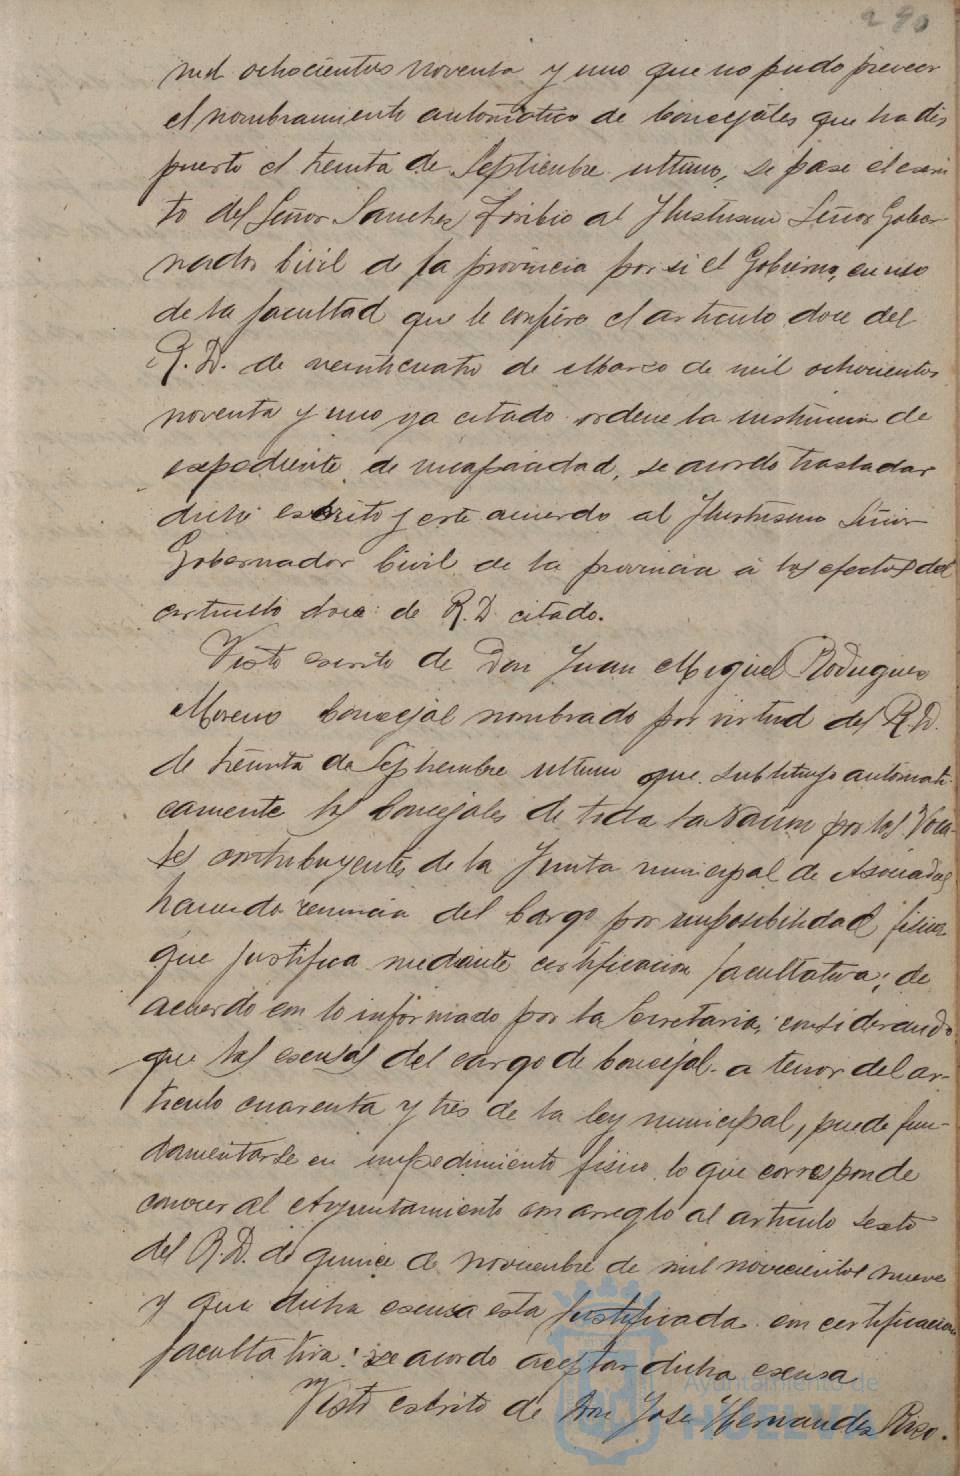 290
mil ochocientos noventa y uno que no pudo preveer
el nombramiento automático de Concejales que ha dis
puesto el treinta de Septiembre ultimo, se pase el escri
to del Señor Sanchez Toribio al Ilustrisimo Señor Gober-
nador Civil de la provincia por si el Gobierno, en uso
de la facultad que le confiere el articulo doce del
R. D. de veinticuatro de Marzo de mil ochocientos
noventa y uno ya citado ordene la instruccion de
expediente de incapacidad, se acordo trasladar
dicho escrito y este acuerdo al Ilustrisimo Señor
Gobernador Civil de la provincia á los efectos del
articulo doce de R. D. citado.
Visto escrito de Don Juan Miguel Rodriguez
Moreno Concejal nombrado por virtud del R. D.
de treinta de Septiembre ultimo que substituyo automati
camente los Concejales de toda la Nacion por los Voca-
les contribuyentes de la Junta municipal de Asociados
haciendo renuncia del Cargo por imposibilidad fisica
que justifica mediante certificacion facultativa; de
acuerdo con lo informado por la Secretaria; considerando
que las escusas del cargo de Concejal a tenor del ar-
ticulo cuarenta y tres de la ley municipal, puede fun-
damentarse en impedimento fisico lo que corresponde
conocer al Ayuntamiento con arreglo al articulo sexto
del R. D. de quince de noviembre de mil novecientos nueve
y que dicha escusa esta justificada con certificacion
facultativa: se acordo aceptar dicha escusa
Visto escrito de Don Jose Hernandez Rizo.
Ayuntamiento de
HUELVA